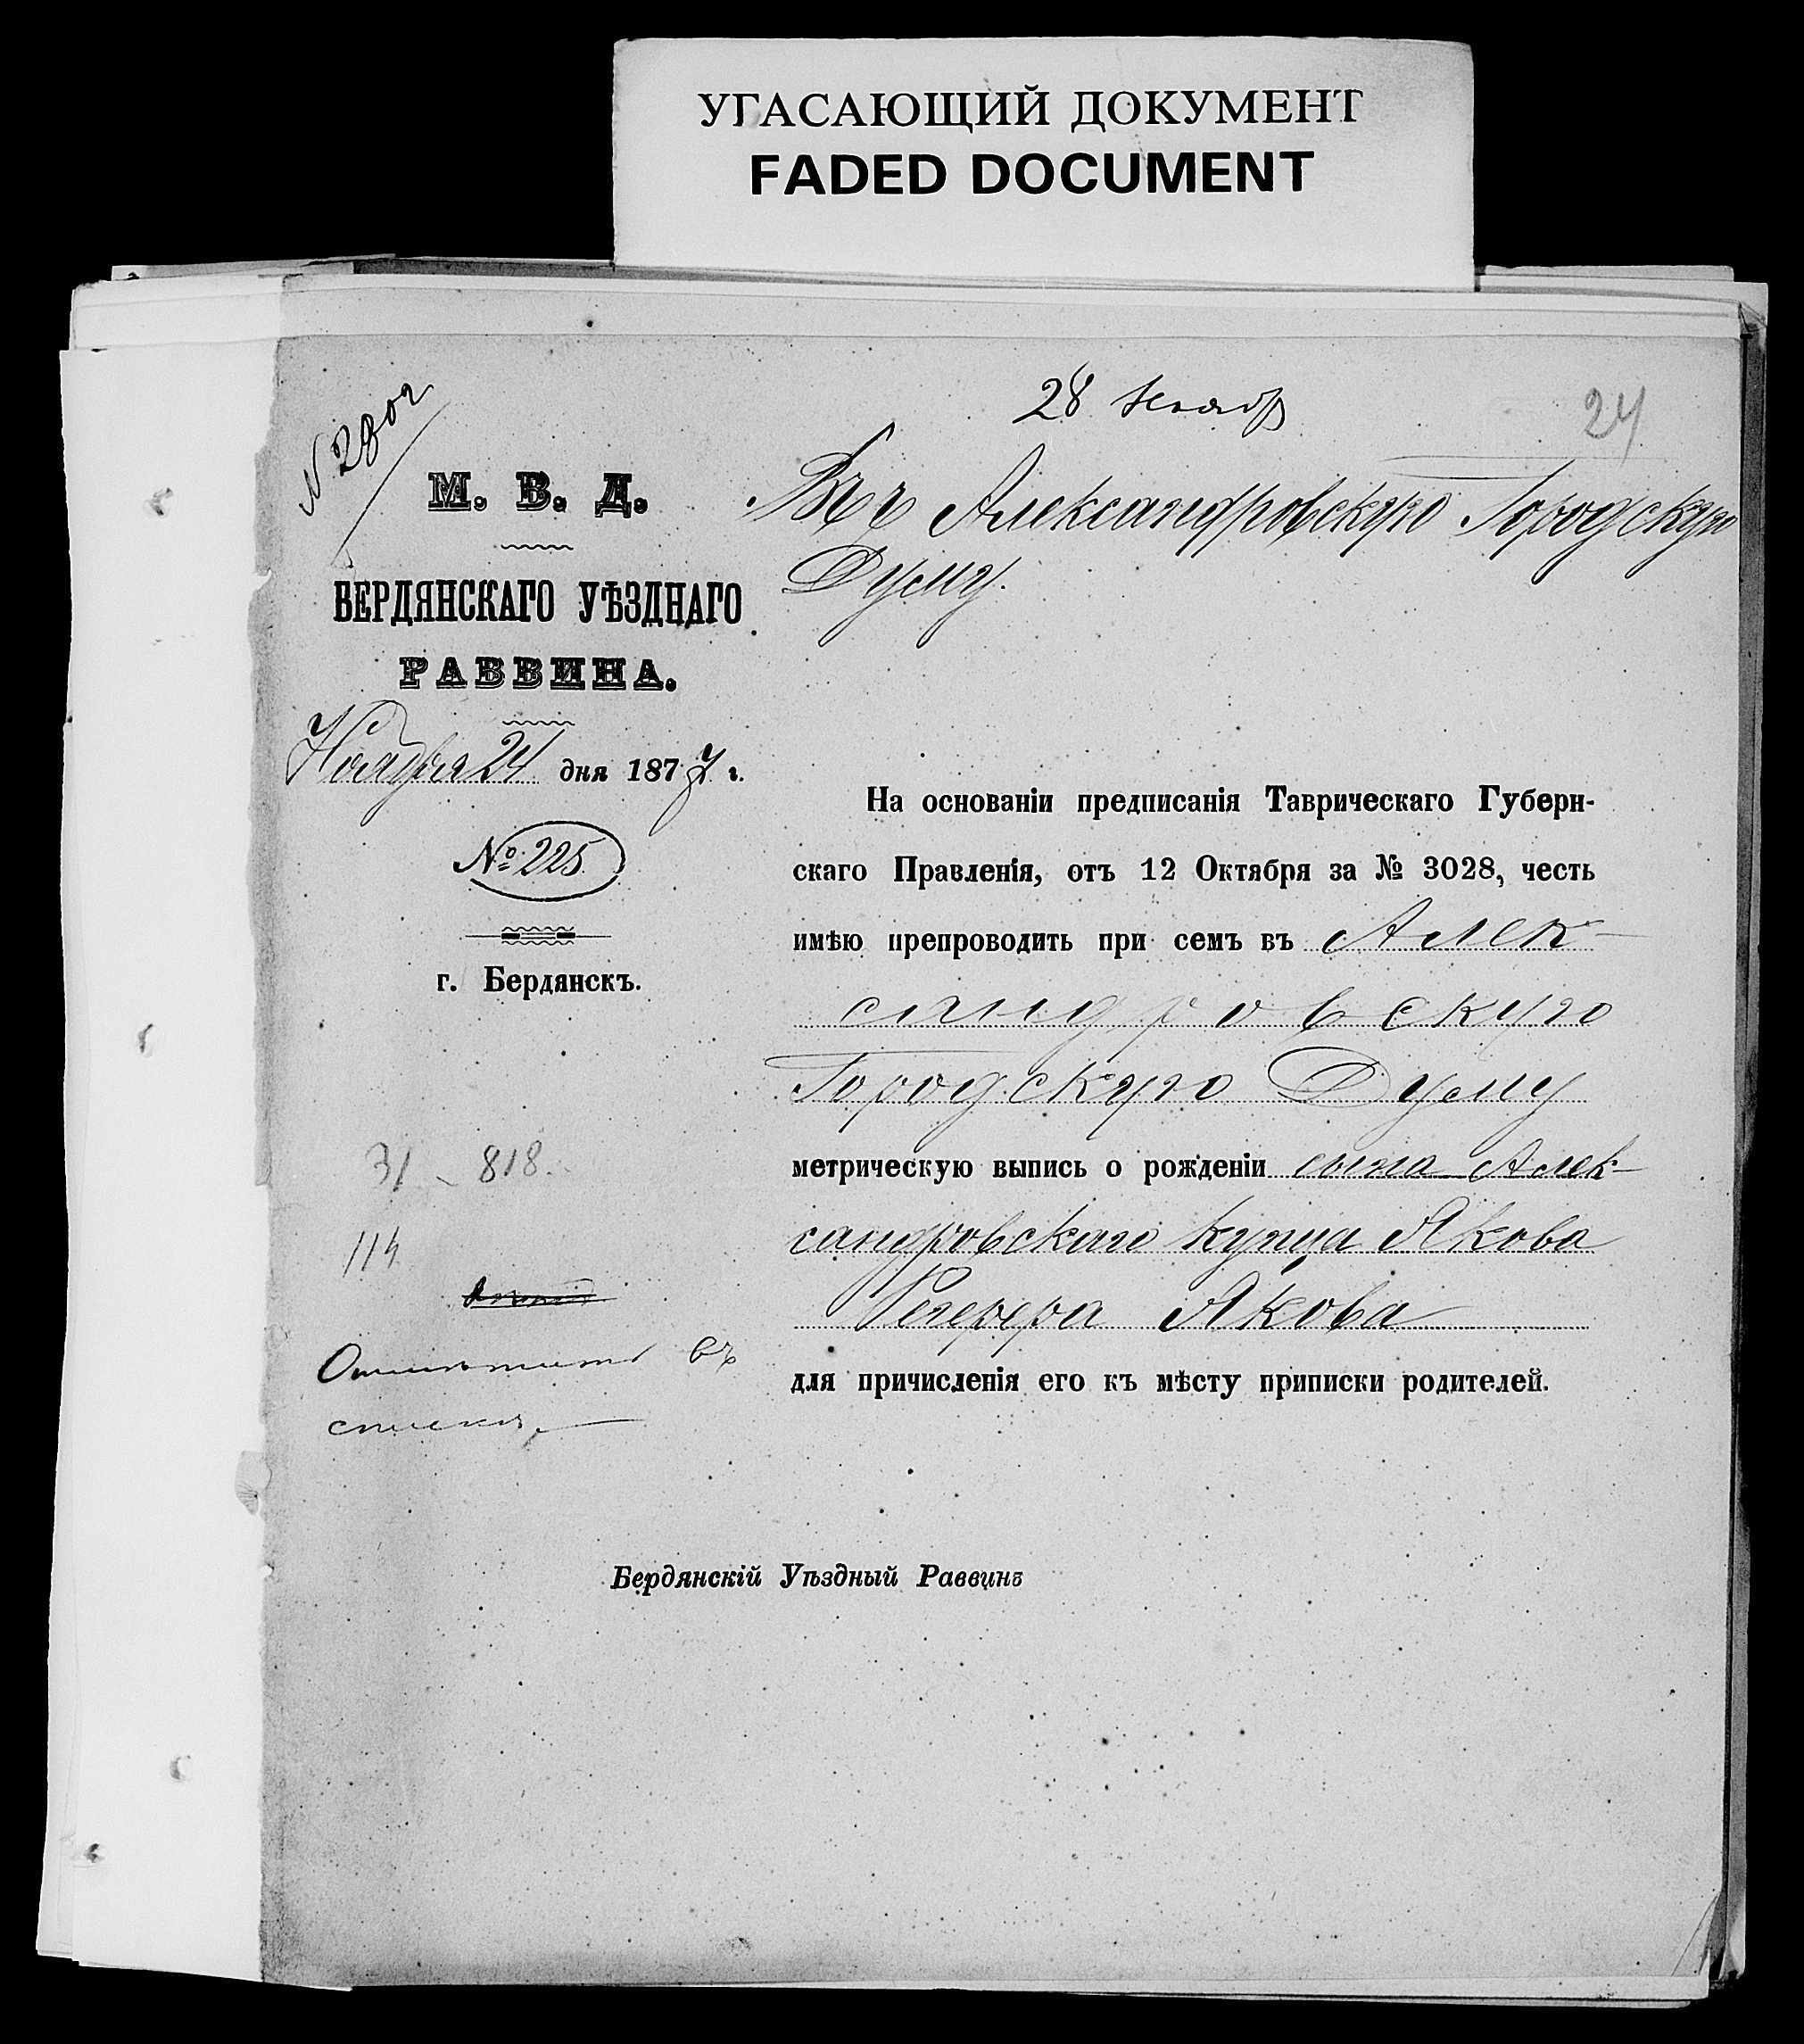 УГАСАЮЩИЙ ДОКУМЕНТ
FADED DOCUMENT
28 Ноября
24
№ 2802
М. В. Д.
БЕРДЯНСКАГО УѢЗДНАГО
РАВВИНА.
Ноября 24 дня 1877 г.
№ 225
г. Бердянскъ.
Въ Александровскую Городскую
Думу.
На основаніи предписанія Таврическаго Губерн-
скаго Правленія, отъ 12 Октября за № 3028, честь
имѣю препроводить при семъ въ Алек-
сандровскую
Городскую Думу
метрическую выпись о рожденіи сына Алек-
сандровскаго купца Якова
Якова
для причисленія его къ мѣсту приписки родителей.
31 - 818.
114
Отмѣтить въ
спискѣ
Бердянскій Уѣздный Раввинъ